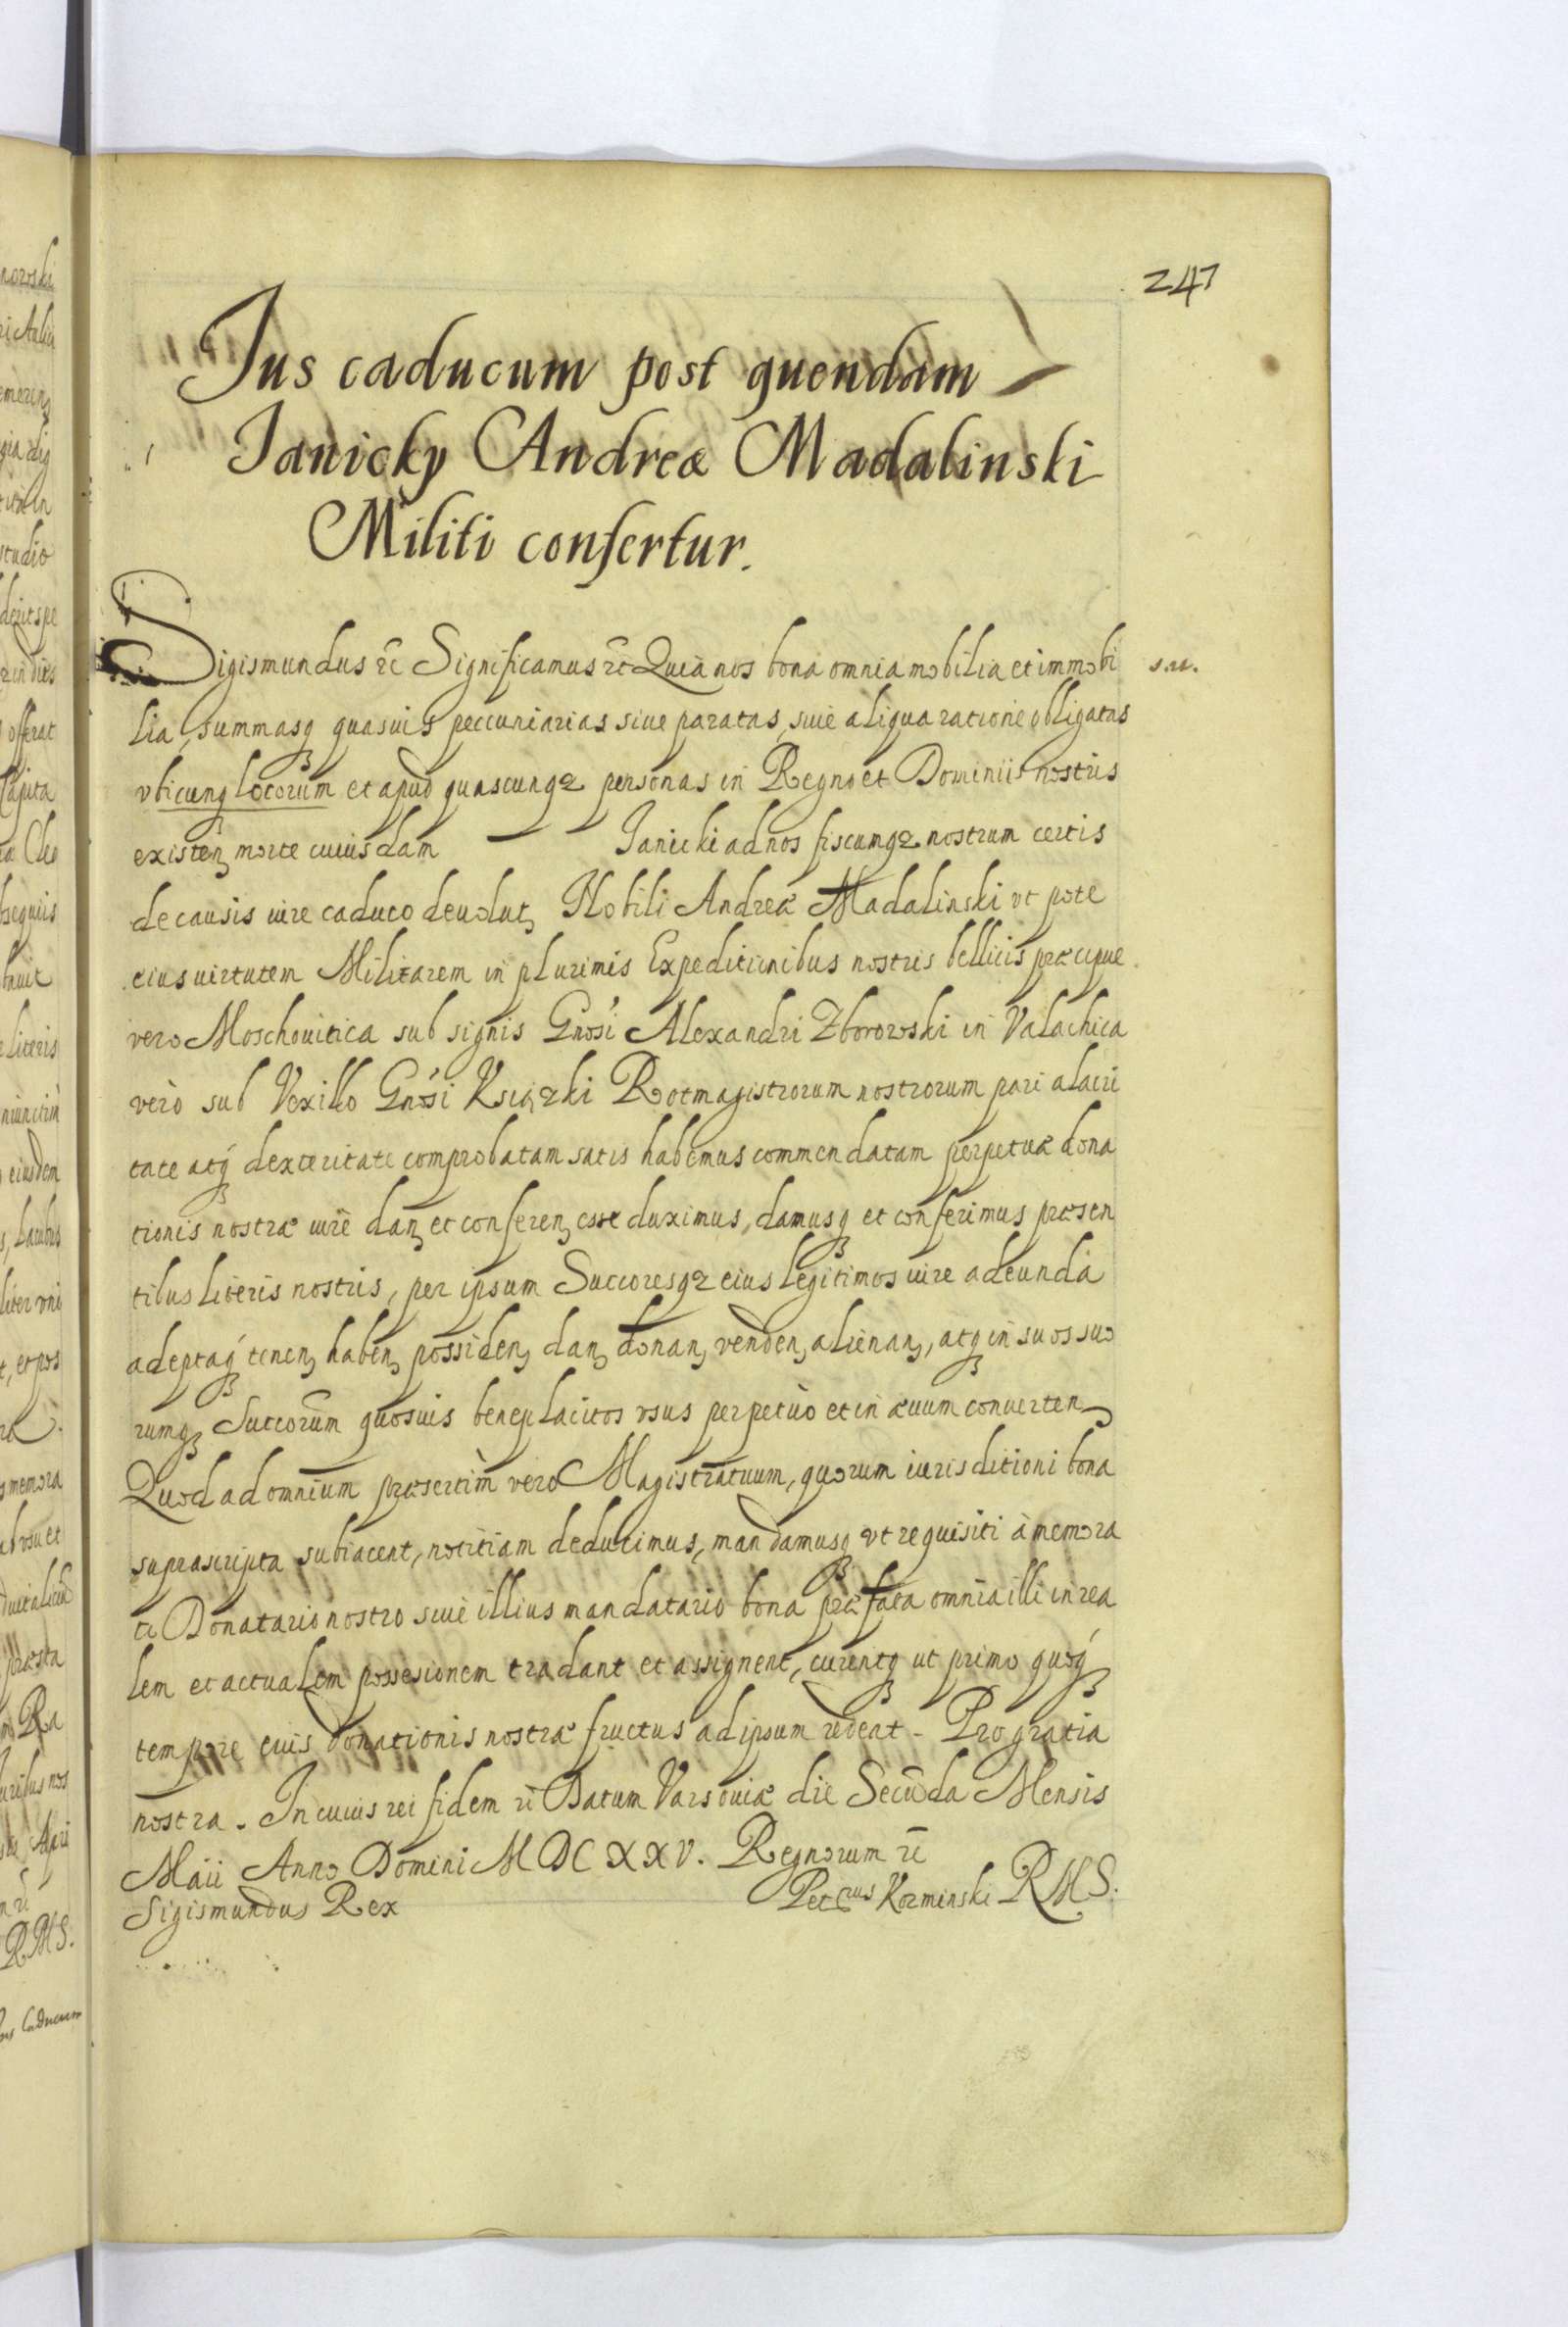 247
Jus caducum post quendam
Janicky Andreæ Madalinski
Militi confertur.
Sigismundus etc Significamus etc Quia nos bona omnia mobilia et immobi
s.m.
lia, summasq quasuis peccuniarias siue paratas, siue aliqua ratione obligatas
vbicunq locorum et apud quascunqz personas in Regno et Dominiis nostris
existen, morte cuiusdam Janicki ad nos fiscumqz nostrum certis
de causis iure caduco deuolut, Nobili Andreæ Madalinski vt pote
eius uirtutem Militarem in plurimis Expeditionibus nostris bellicis præcipue
vero Moschouitica sub signis Gnosi Alexandri Zborowski in Valachica
verò sub Vexillo Gnosi Ksiązki Rotmagistrorum nostrorum pari alacri
tate atq dexteritate comprobatam satis habemus commendatam perpetuæ dona
tionis nostræ iure dan, et conferen, esse duximus, damusq et conferimus præsen
tibus literis nostris, per ipsum Succoresqz eius legitimos iure adeunda
adeptaq tenen, haben, possiden, dan, donan, venden, alienan, atq in suos suo
rumq Succorum quosuis beneplacitos vsus perpetuo et in æuum conuerten,
Quod ad omnium præsertim vero Magistratuum, quorum iurisditioni bona
suprascripta subiacent, notitiam deducimus, mandamusq vt requisiti à memora
to Donatario nostro siue illius mandatario bona præfata omnia illi in rea
lem et actualem possesionem tradant et assignent, curentq ut primo quoq
tempore euis donationis nostræ fructus ad ipsum redeat - Pro gratia
nostra. In cuius rei fidem etc Datum Varsouiæ die Secunda Mensis
Maii Anno Domini MDCXXV. Regnorum etc
Sigismundus Rex Petrus Korminski RMS.